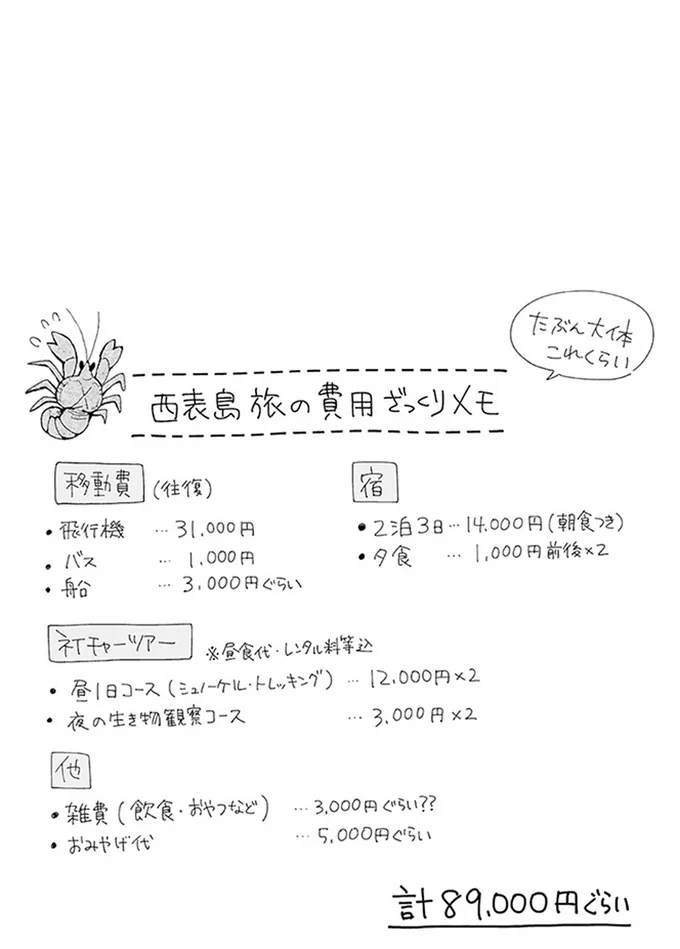 たぶん大体
これくらい
西表島 旅の費用 ざっくりメモ
移動費 (往復)
・飛行機 … 31,000円
・バス … 1,000円
・船 … 3,000円ぐらい
宿
・2泊3日…14,000円(朝食つき)
・夕食 … 1,000円前後×2
ネイチャーツアー ※昼食代・レンタル料等込
・昼1日コース(シュノーケル・トレッキング) … 12,000円×2
・夜の生き物観察コース … 3,000円×2
他
・雑費(飲食・おやつなど) … 3,000円ぐらい??
・おみやげ代 … 5,000円ぐらい
計 89,000円ぐらい